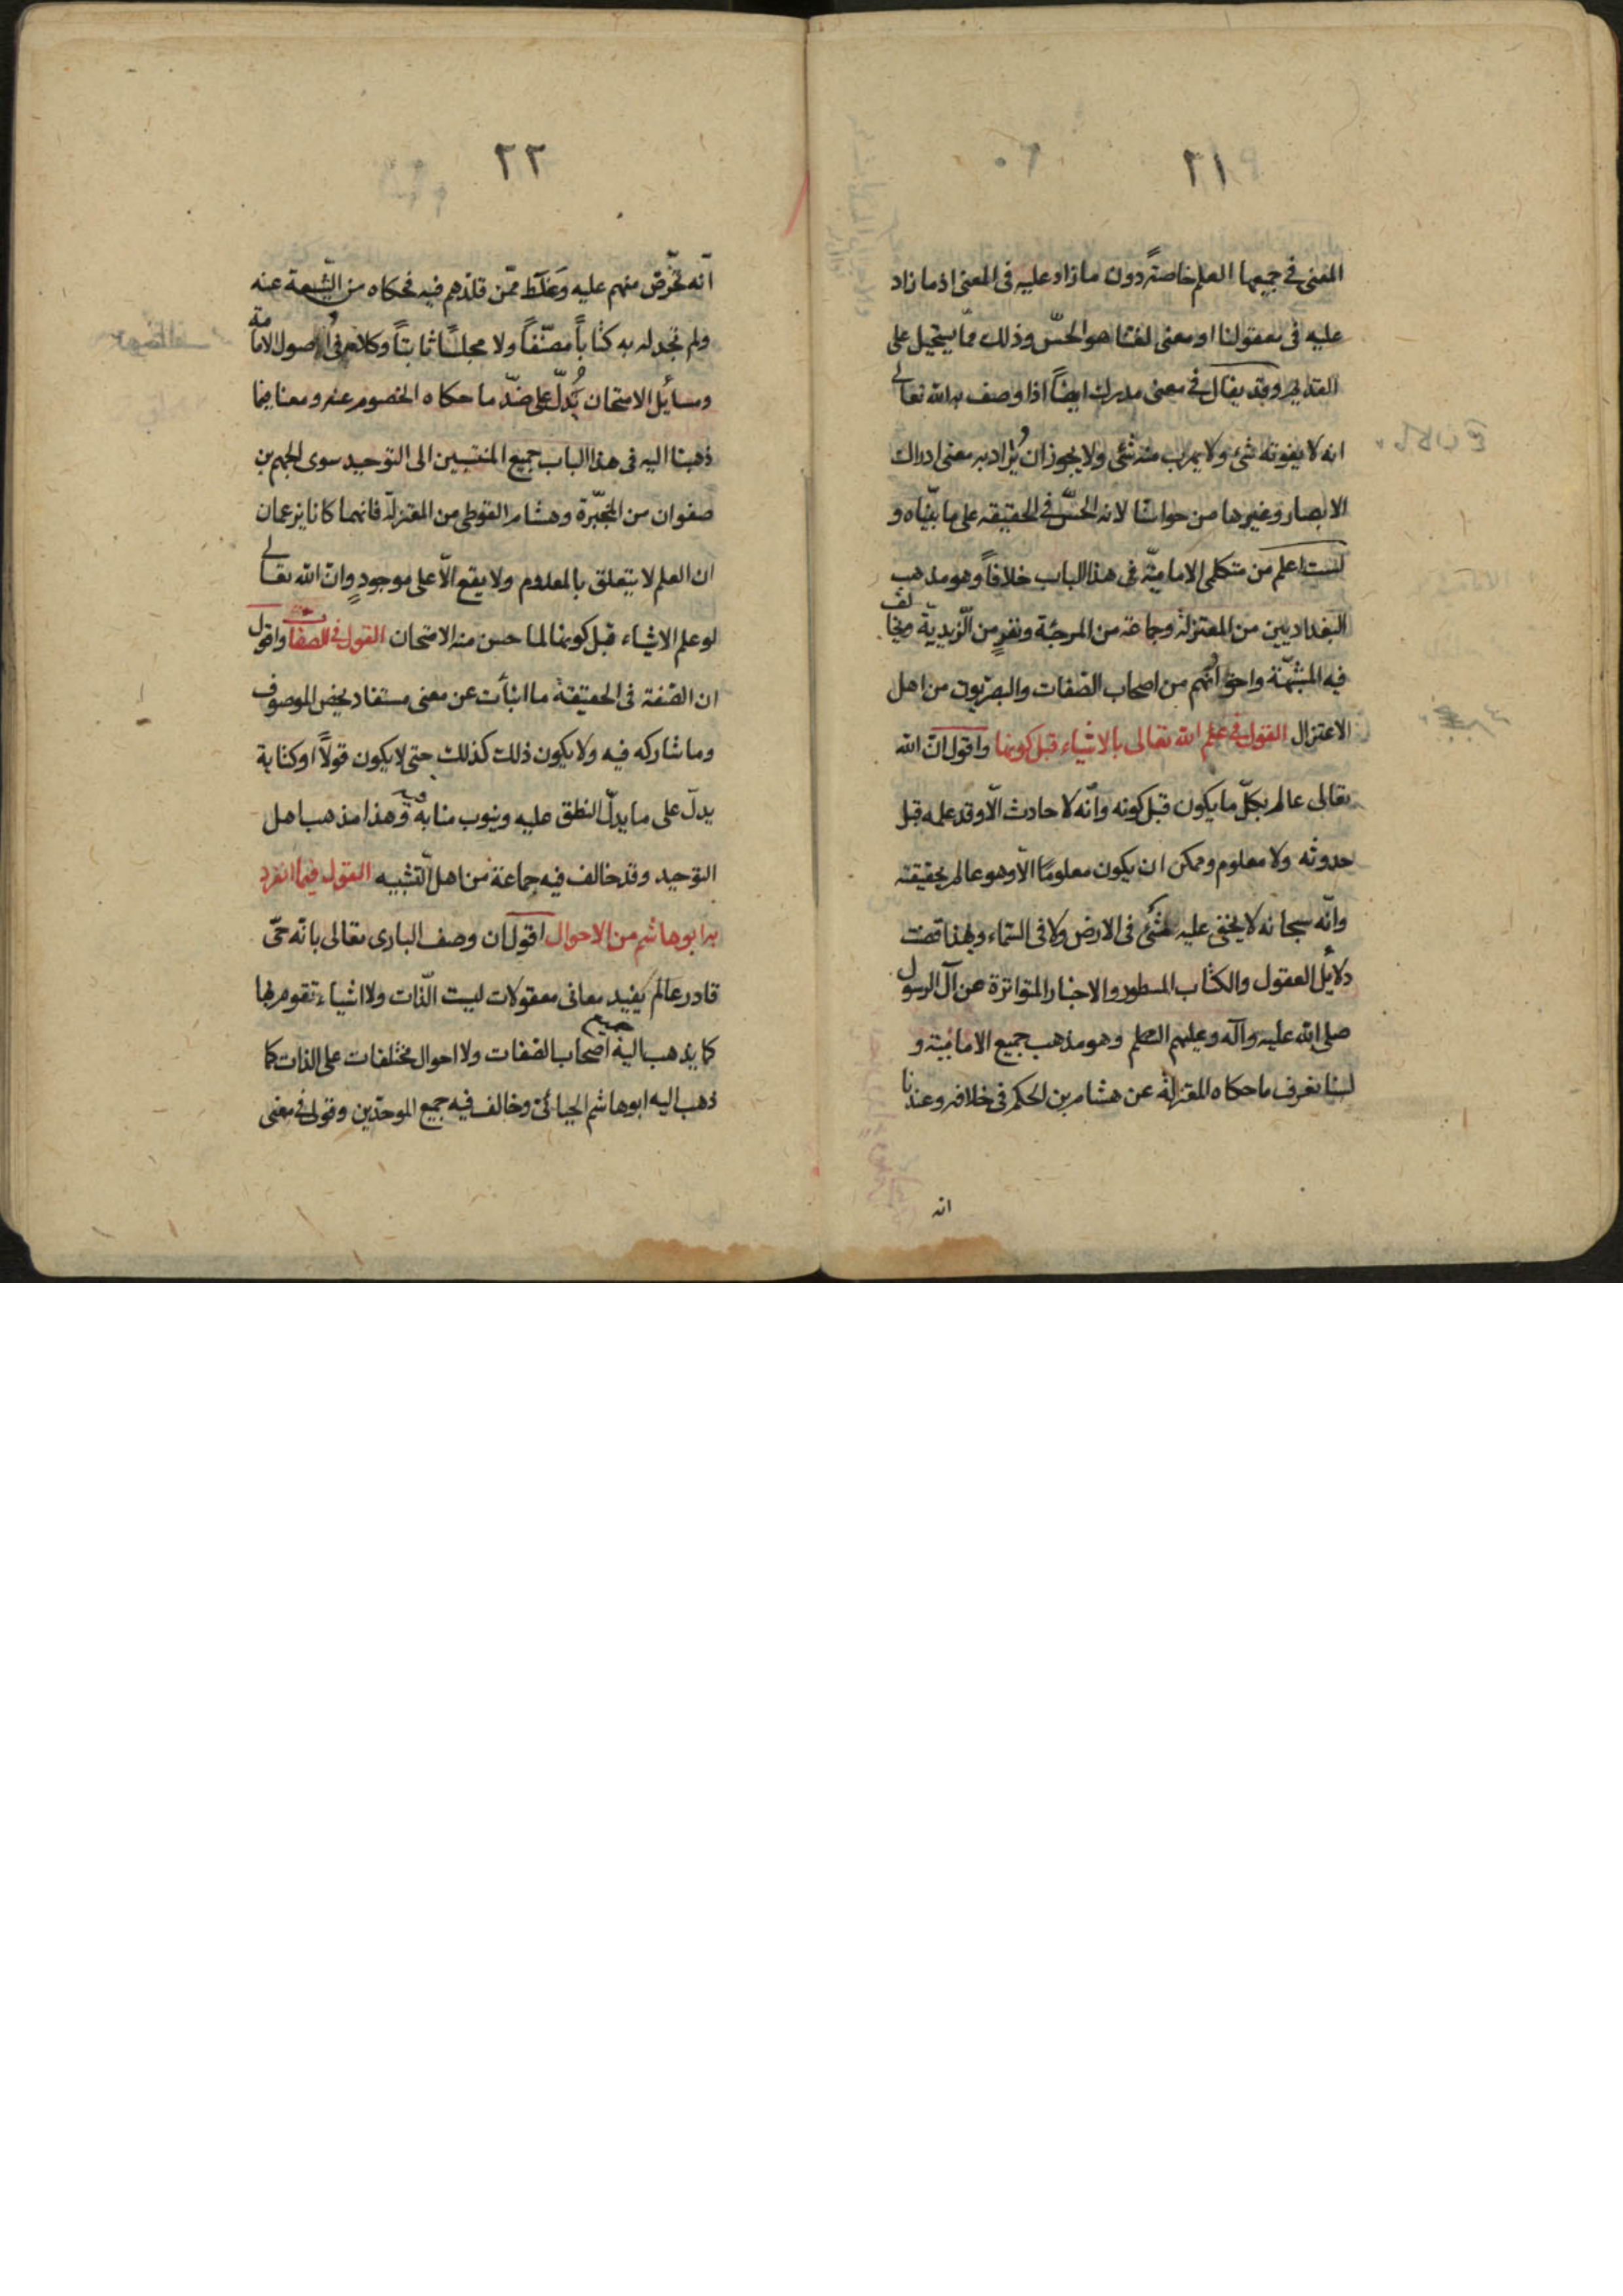 ٢١
المعنى في جميعها العلم خاصةً دون ما زاد عليه فى المعنى اذ ما زاد
عليه فى معقولنا او معنى لغتنا هو الحسّ وذلك ممّا يستحيل على
القديم وقد يقال في معنى مدرك ايضاً اذا وصف به الله تعالى
انه لا يفوته شئ ولا يهرب منه شئ ولا يجوز ان يُراد به معنى ادراك
الابصار وغيرها من حواسنا لانه الحسّ في الحقيقه على ما بيّناه و
لست اعلم من متكلمى الاماميّة فى هذا الباب خلافاً وهو مذهب
البغداديين من المعتزلة وجماعة من المرجئة ونفرٍ من الزّيديّة ويخالف
فيه المشبّهة واخوانهم من اصحاب الصّفات والبصرّيون من اهل
الاعتزال القول في علم الله تعالى بالاشياء قبل كونها واقول انّ الله
تعالى عالم بكلّ ما يكون قبل كونه وانّه لا حادث الّا وقد علمه قبل
حدوثه ولا معلوم وممكن ان يكون معلومًا الّا وهو عالم بحقيقته
وانّه سبحانه لا يخفى عليه شئ فى الارض ولا فى السّماء وبهذا قضت
دلائل العقول والكتاب المسطور والاخبار المتواترة عن آل الرسول
صلى الله عليه وآله وعليهم السلم وهو مذهب جميع الاماميّة و
لسنا نعرف ما حكاه المعتزلة عن هشام بن الحكم فى خلافه وعندنا
انه
٢٢
انّه تخّرص منهم عليه وَغلط ممّن قلّدهم فيه فحكاه من الشّيعة عنه
ولم نجد له به كتاباً مصنّفاً ولا مجلسًا ثابتاً وكلامه فى اُصول الامامة
ومسائل الامتحان يُدلّ على ضدّ ما حكاه الخصوم عنه ومعنا فيما
ذهبنا اليه فى هذا الباب جميع المنتسبين الى التوحيد سوى الجهم بن
صفوان من المجبّرة وهشام الفوطى من المعتزلة فانهما كانا يزعمان
ان العلم لا يتعلق بالمعدوم ولا يقع الّا على موجودٍ وانّ الله تعالى
لو علم الاشياء قبل كونها لما حسن منه الامتحان القول في الصفات واقول
ان الصّفة فى الحقيقة ما انبأت عن معنى مستفاد يخصّ الموصوف
وما شاركه فيه ولا يكون ذلك كذلك حتى لا يكون قولاً او كتابة
يدلّ على ما يدلّ النطق عليه وينوب منابه فيه وهذا مذهب اهل
التوحيد وقد خالف فيه جماعة من اهل التشبيه القول فيما انفرد
به ابو هاشم من الاحوال اقول ان وصف البارى تعالى بانّه حىّ
قادر عالم يفيد معانى معقولات ليست الذّات ولا اشياء تقوم بها
كما يذهب اليه جميع اصحاب الصفات ولا احوال مختلفات على الذات كما
ذهب اليه ابو هاشم الجبائى وخالف فيه جميع الموحدّين وقولى في معنى